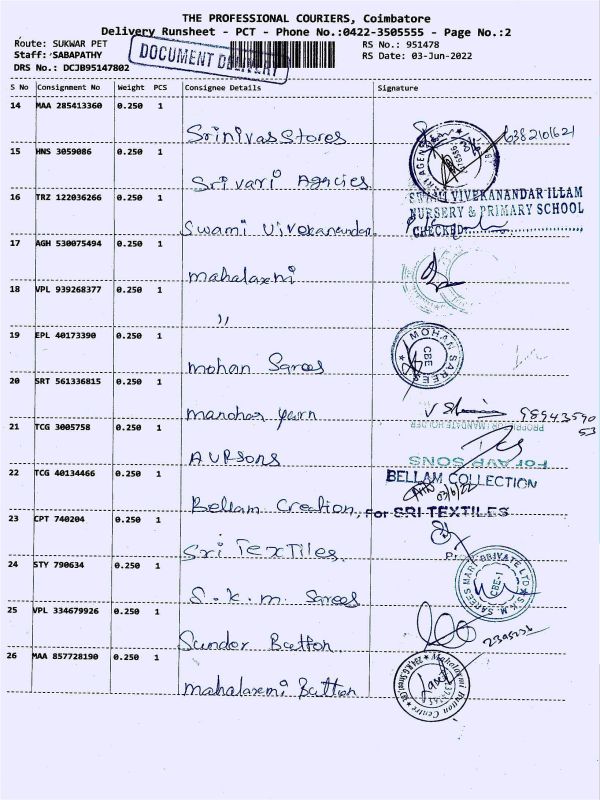 THE PROFESSIONAL COURIERS, Coimbatore
Delivery Runsheet - PCT - Phone No.:0422-3505555 - Page No.:2
Route: SUKWAR PET
RS No.: 951478
Staff: SABAPATHY
RS Date: 03-Jun-2022
DRS No.: DCJB95147802
DOCUMENT DELIVERY
S No Consignment No Weight PCS Consignee Details Signature
14 MAA 285413360 0.250 1
Srinivas Stores
6382101621
15 HNS 3059086 0.250 1
Sri vari Agencies
16 TRZ 122036266 0.250 1
SWAMI VIVEKANANDAR ILLAM
NURSERY & PRIMARY SCHOOL
Swami Vivekanandar
CHECKED
17 AGH 530075494 0.250 1
mahalaxmi
18 VPL 939268377 0.250 1
〃
19 EPL 40173390 0.250 1
MOHAN SAREES
CBE
mohan Sarees
20 SRT 561336815 0.250 1
manohar yarn
21 TCG 3005758 0.250 1
PROPRIETOR / MANDATE HOLDER
AVRSONS
22 TCG 40134466 0.250 1
BELLAM COLLECTION
03/6/22
Bellam Creation
For SRI TEXTILES
23 CPT 740204 0.250 1
Sri Textiles
24 STY 790634 0.250 1
S.K.M. SAREES MART PRIVATE LTD
CBE-1
S.K.M. Sarees
25 VPL 334679926 0.250 1
Sunder Button
26 MAA 857728190 0.250 1
Mahalaxmi Button Centre
mahalaxmi Button